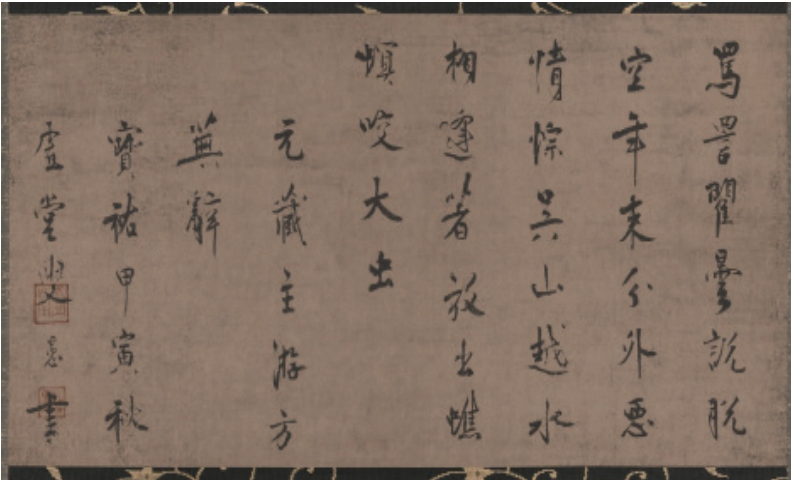 罵詈瞿曇說脫
空年來分外惡
情悰吳山越水
相逢著放出蟭
螟咬大虫
元藏主游方
無辭
寶祐甲寅秋
虛堂叟 愚書